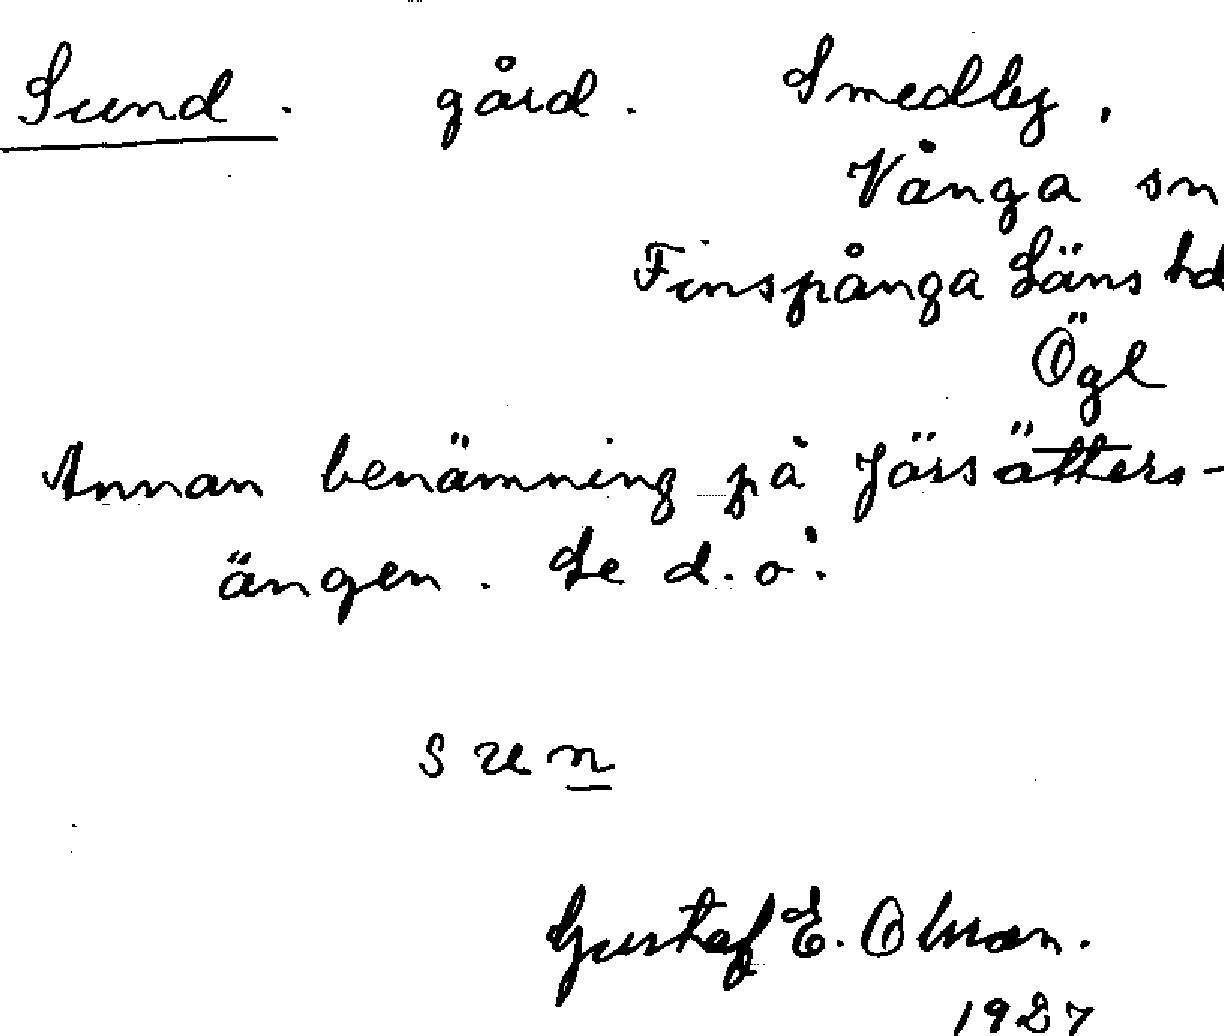 Sund. gård. Smedby,
Vånga sn
Finspånga Läns hd
Ögl
Annan benämning på Jörsätters-
ängen. Se d. o.
sun
Gustaf E. Olsson.
1927